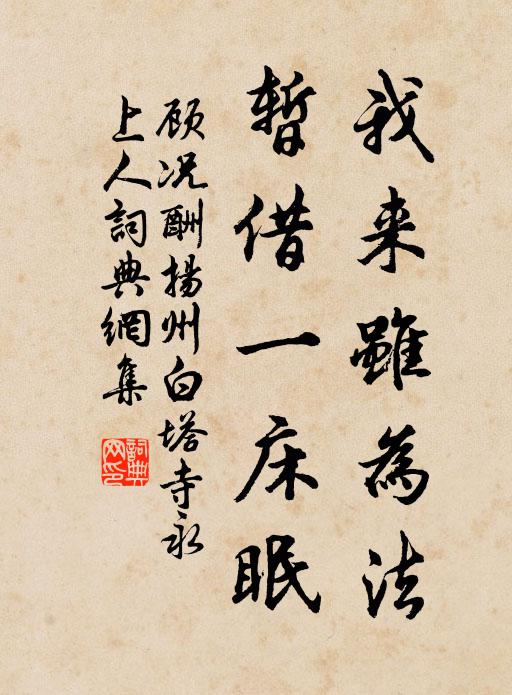 我来雖為法
暫借一床眠
顾况酬揚州白塔寺永
上人詞典網集
詞典
网印